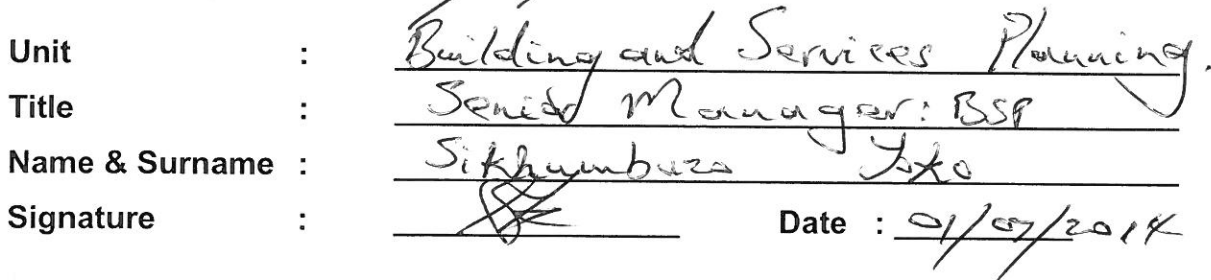 Unit : Building and Services Planning.
Title : Senior Manager: BSP
Name & Surname : Sikhumbuzo
Signature :
Date : 01/07/2014